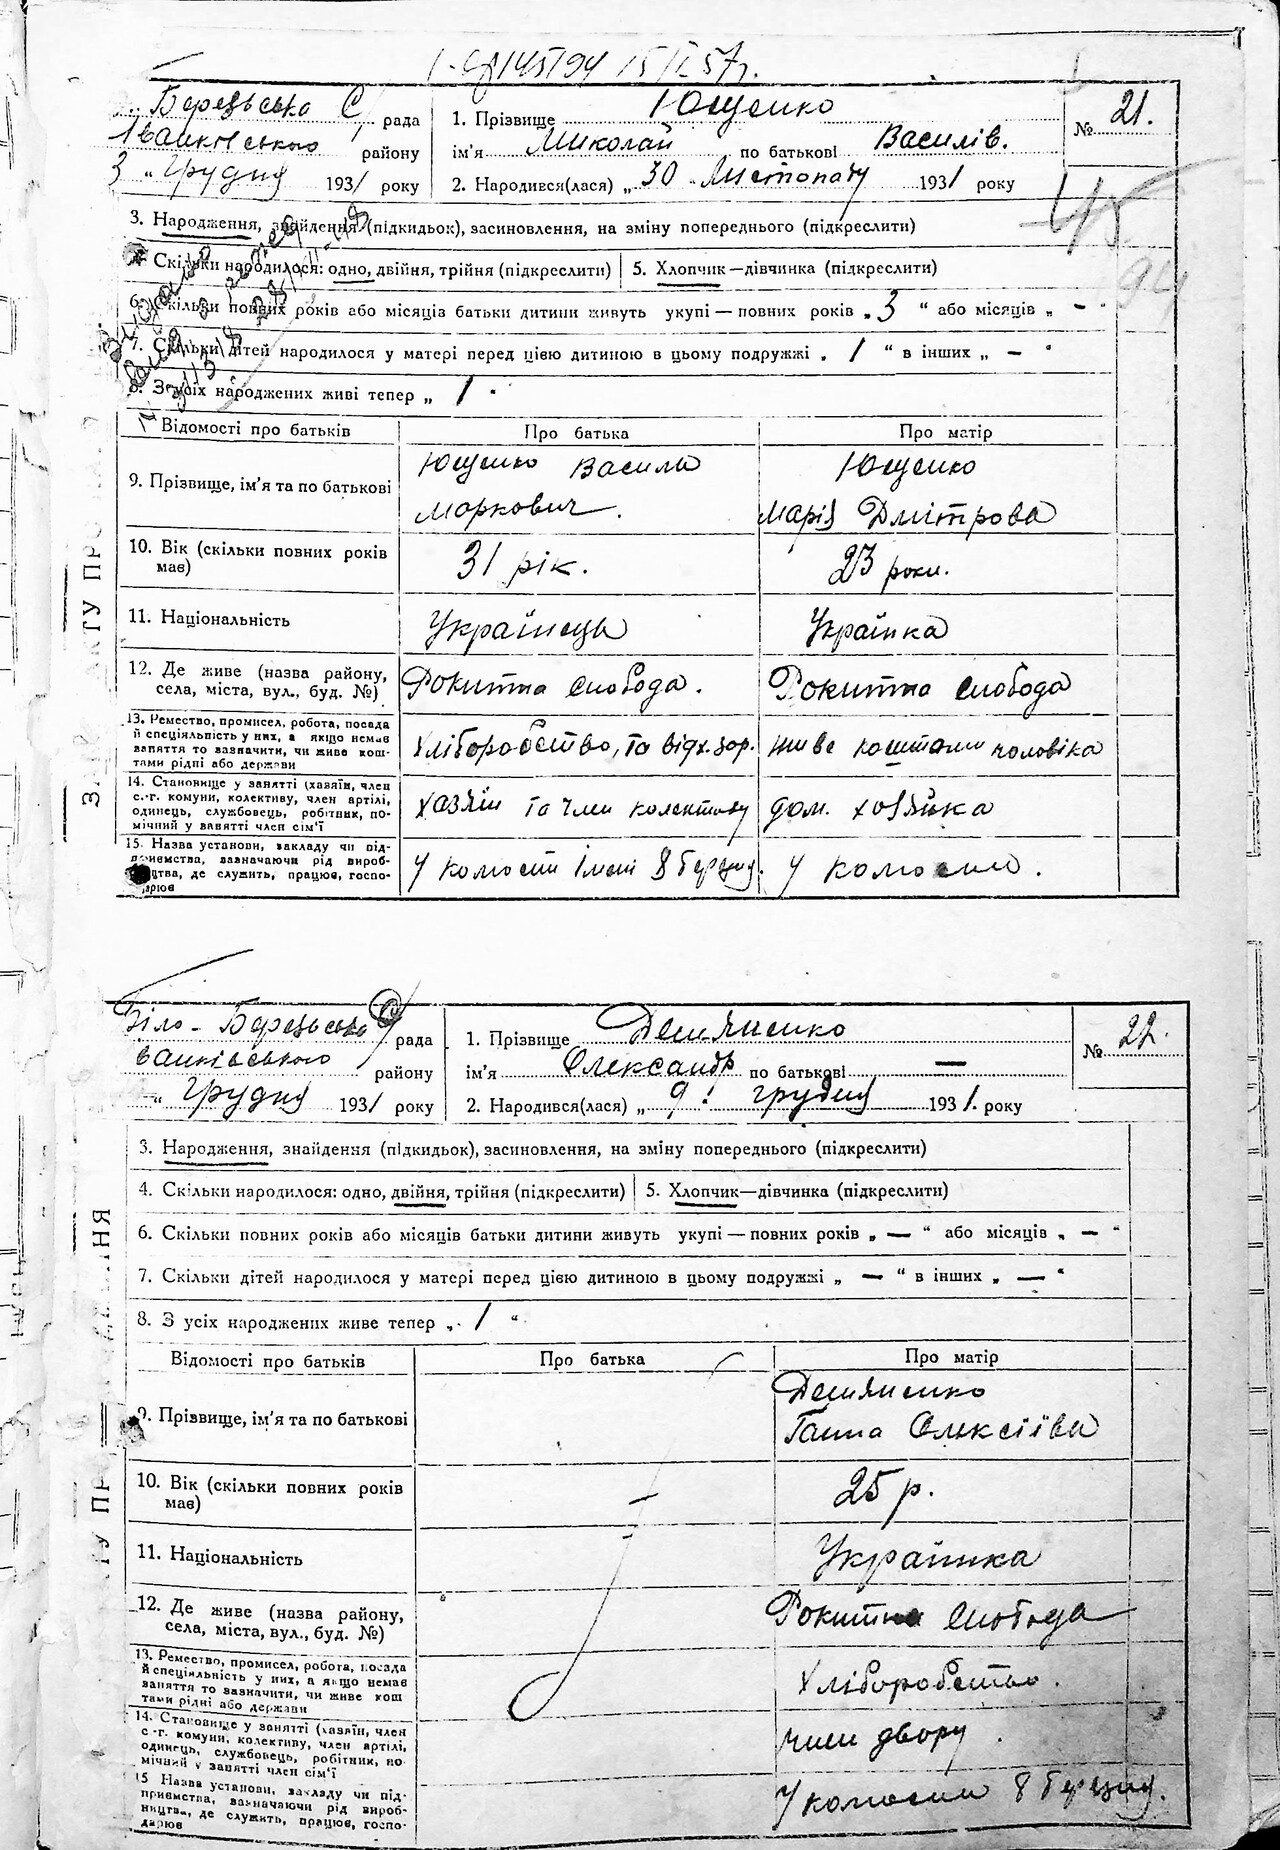 15 57 р.
Березьська С рада
Іванківського району
3 „ Грудня 1931 року
1. Прізвище Ющенко
ім'я Миколай по батькові Василів.
2. Народився(лася) „ 30 „ Листопаду 1931 року
№ 21.
3. Народження, знайдення (підкидьок), засиновлення, на зміну попереднього (підкреслити)
Скільки народилося: одно, двійня, трійня (підкреслити) 5. Хлопчик—дівчинка (підкреслити)
6. Скільки повних років або місяців батьки дитини живуть укупі — повних років „ 3 “ або місяців „ — “
7. Скільки дітей народилося у матері перед цією дитиною в цьому подружжі „ 1 “ в інших „ — “
8. З усіх народжених живі тепер „ 1 “
Відомості про батьків Про батька Про матір
9. Прізвище, ім'я та по батькові
Ющенко Василь
Маркович.
Ющенко
Марія Дмітрова
10. Вік (скільки повних років має)
31 рік.
23 роки.
11. Національність
Українець
Українка
12. Де живе (назва району,
села, міста, вул., буд. №)
Рокитна Слобода.
Рокитна Слобода
13. Ремество, промисел, робота, посада
й спеціяльність у них, а якщо немає
заняття то зазначити, чи живе кош-
тами рідні або держави
Хліборобство, та відх. зар.
живе коштами чоловіка
14. Становище у занятті (хазяїн, член
с.-г. комуни, колективу, член артілі,
одинець, службовець, робітник, по-
мічний у занятті член сім'ї
Хазяїн та член колективу
дом. хозяйка
15. Назва установи, закладу чи під-
приємства, зазначаючи рід вироб-
цтва, де служить, працює, госпо-
дарює
У колгоспі імені 8 березня.
У колгоспі.
Біло-Березьська С рада
Іванківського району
„ Грудня 1931 року
1. Прізвище Демяненко
ім'я Олександр по батькові —
2. Народився(лася) „ 9. грудня 1931. року
№ 22.
3. Народження, знайдення (підкидьок), засиновлення, на зміну попереднього (підкреслити)
4. Скільки народилося: одно, двійня, трійня (підкреслити) 5. Хлопчик—дівчинка (підкреслити)
6. Скільки повних років або місяців батьки дитини живуть укупі — повних років „ — “ або місяців „ — “
7. Скільки дітей народилося у матері перед цією дитиною в цьому подружжі „ — “ в інших „ — “
8. З усіх народжених живе тепер „ 1 “
Відомості про батьків Про батька Про матір
9. Прізвище, ім'я та по батькові
Демяненко
Ганна Олексіїва
10. Вік (скільки повних років має)
25 р.
11. Національність
Українка
12. Де живе (назва району,
села, міста, вул., буд. №)
Рокитна Слобода
13. Ремество, промисел, робота, посада
й спеціяльність у них, а якщо немає
заняття то зазначити, чи живе кош
тами рідні або держави
Хліборобство.
14. Становище у занятті (хазяїн, член
с.-г. комуни, колективу, член артілі,
одинець, службовець, робітник, по-
мічний у занятті член сім'ї
член двору.
15 Назва установи, закладу чи під-
приємства, зазначаючи рід вироб-
ництва, де служить, працює, госпо-
дарює
У колгоспі 8 березня.